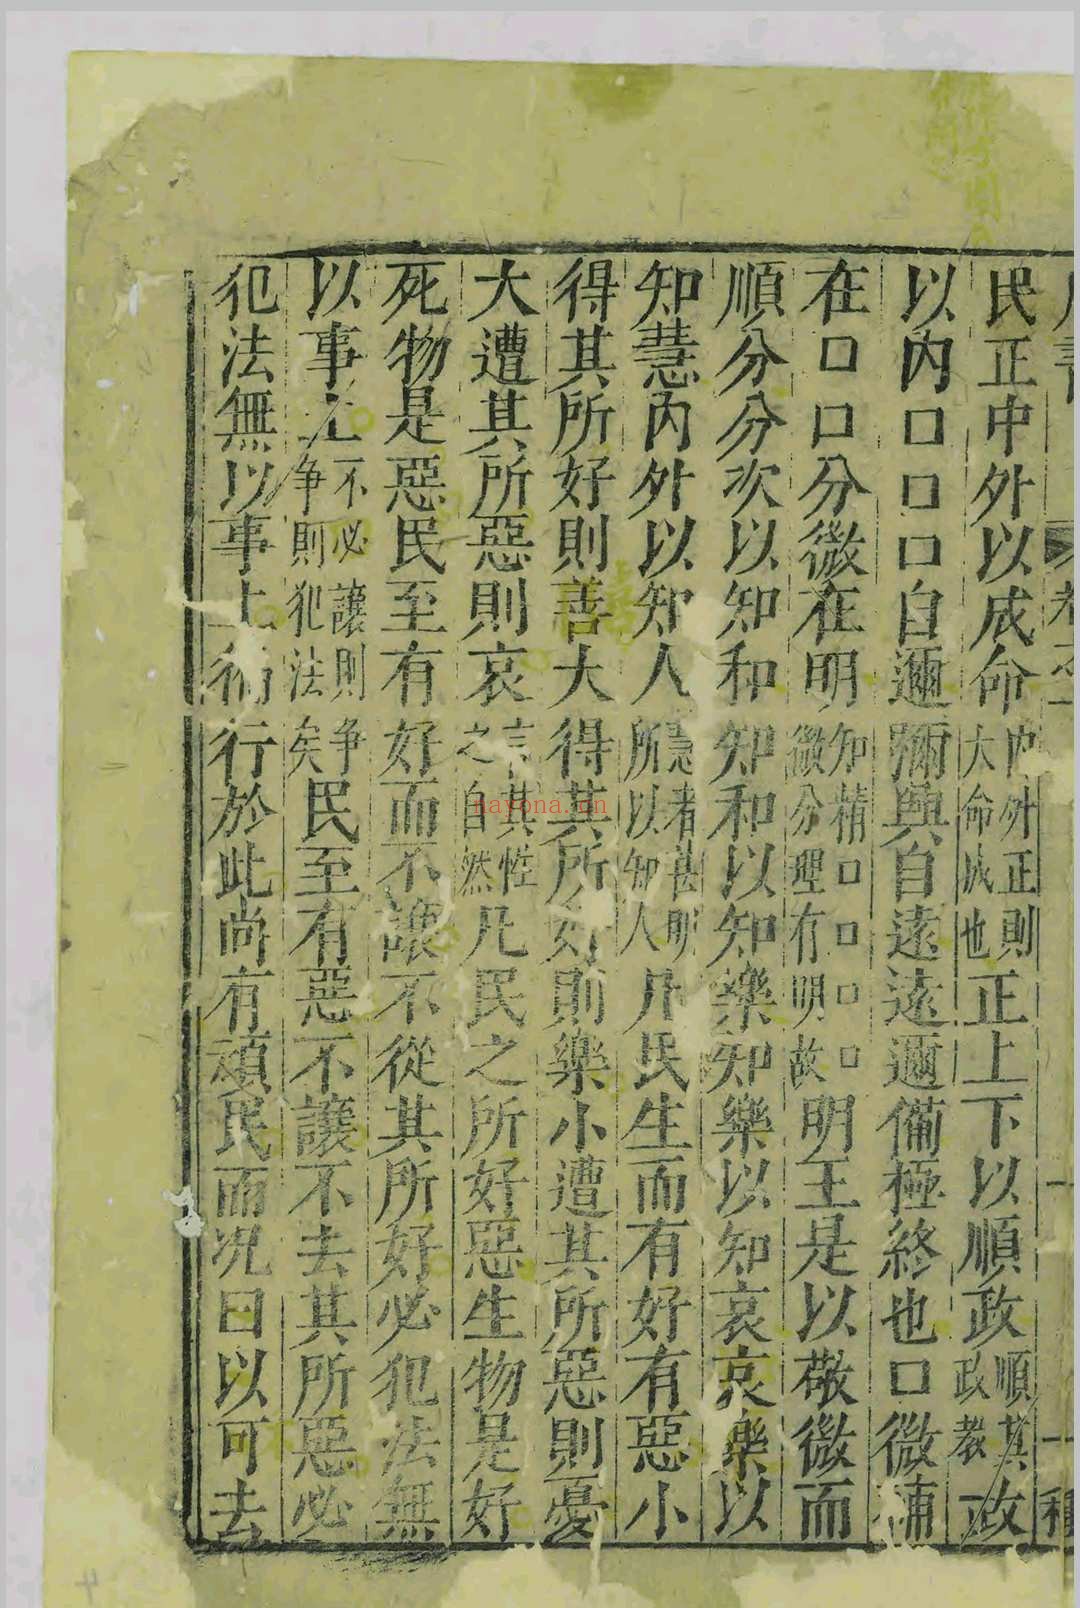 民正中外以成命內外正則大命成也正上下以順政順其政教政
以內口口口自邇彌興自遠遠邇備極終也口微補
在口口分微在明知精口口口口微分理有明故明王是以敬微而
順分分次以知和知和以知樂知樂以知哀哀樂以
知慧內外以知人慧者甚明所以知人凡民生而有好有惡小
得其所好則善大得其所好則樂小遭其所惡則憂
大遭其所惡則哀言其性之自然凡民之所好惡生物是好
死物是惡民至有好而不讓不從其所好必犯法無
以事上不必讓則爭爭則犯法矣民至有惡不讓不去其所惡必
犯法無以事上徧行於此尚有頑民而况曰以可去
nayona.cn